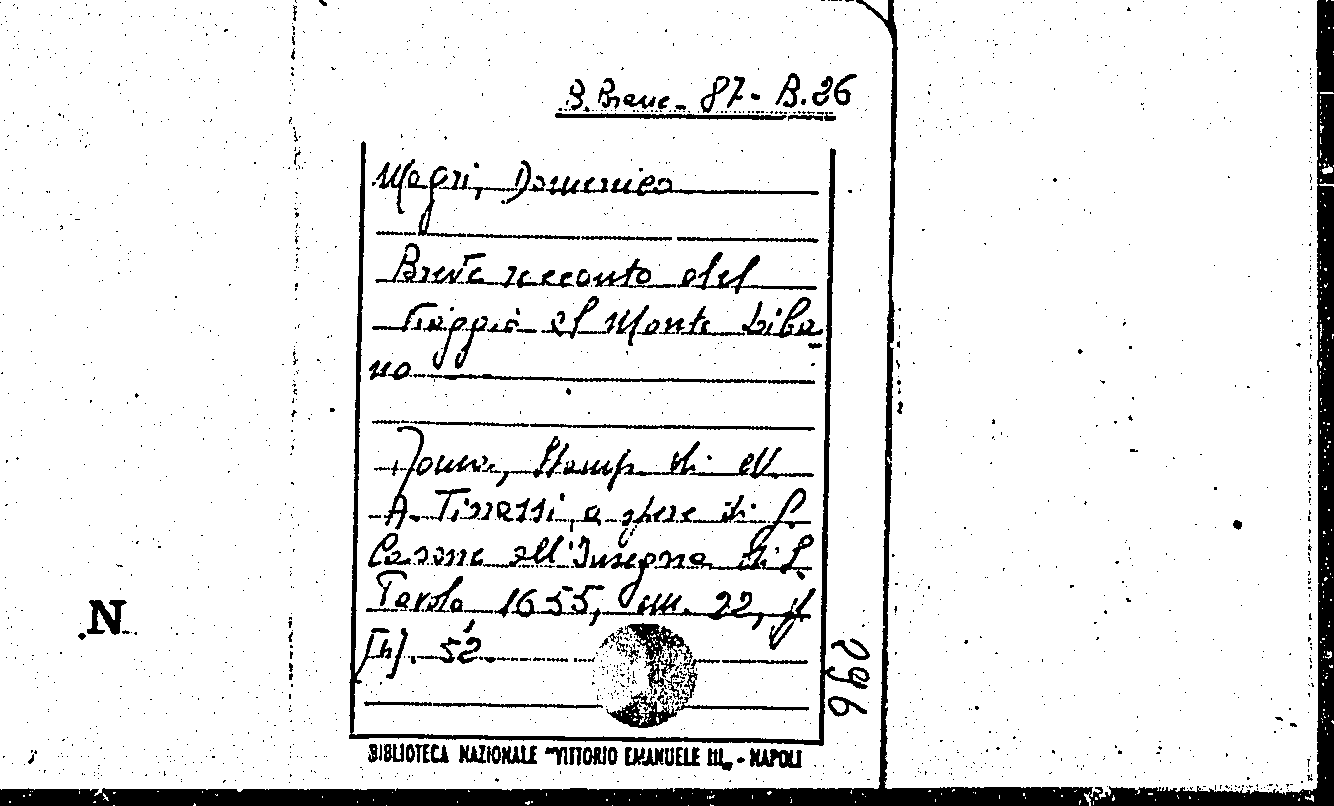 B. Brane. 87- B.26
Magri, Domenico
Breve racconto del
viaggio al Monte Liba
no
Roma, Stamp. di M.
A. Tinassi, a spese di G.
Casone all'Insegna di S.
Paolo 1655, cm. 22, pp.
[4]. 52.
296
N
BIBLIOTECA NAZIONALE "VITTORIO EMANUELE III„ - NAPOLI